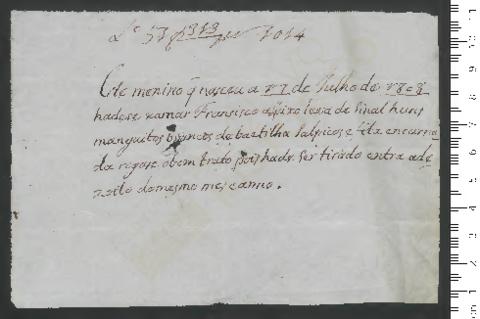 Lº 57 f 1313 1014
Este menino q̃ nasceu a 17 de Julho de
hadese xamar Francisco leva de sinal huns
manguitos brancos de bertilha salpicos e fita encarna
da rogase obom trato pois hade ser tirado entra ade
zoito domesmo mes e anno.